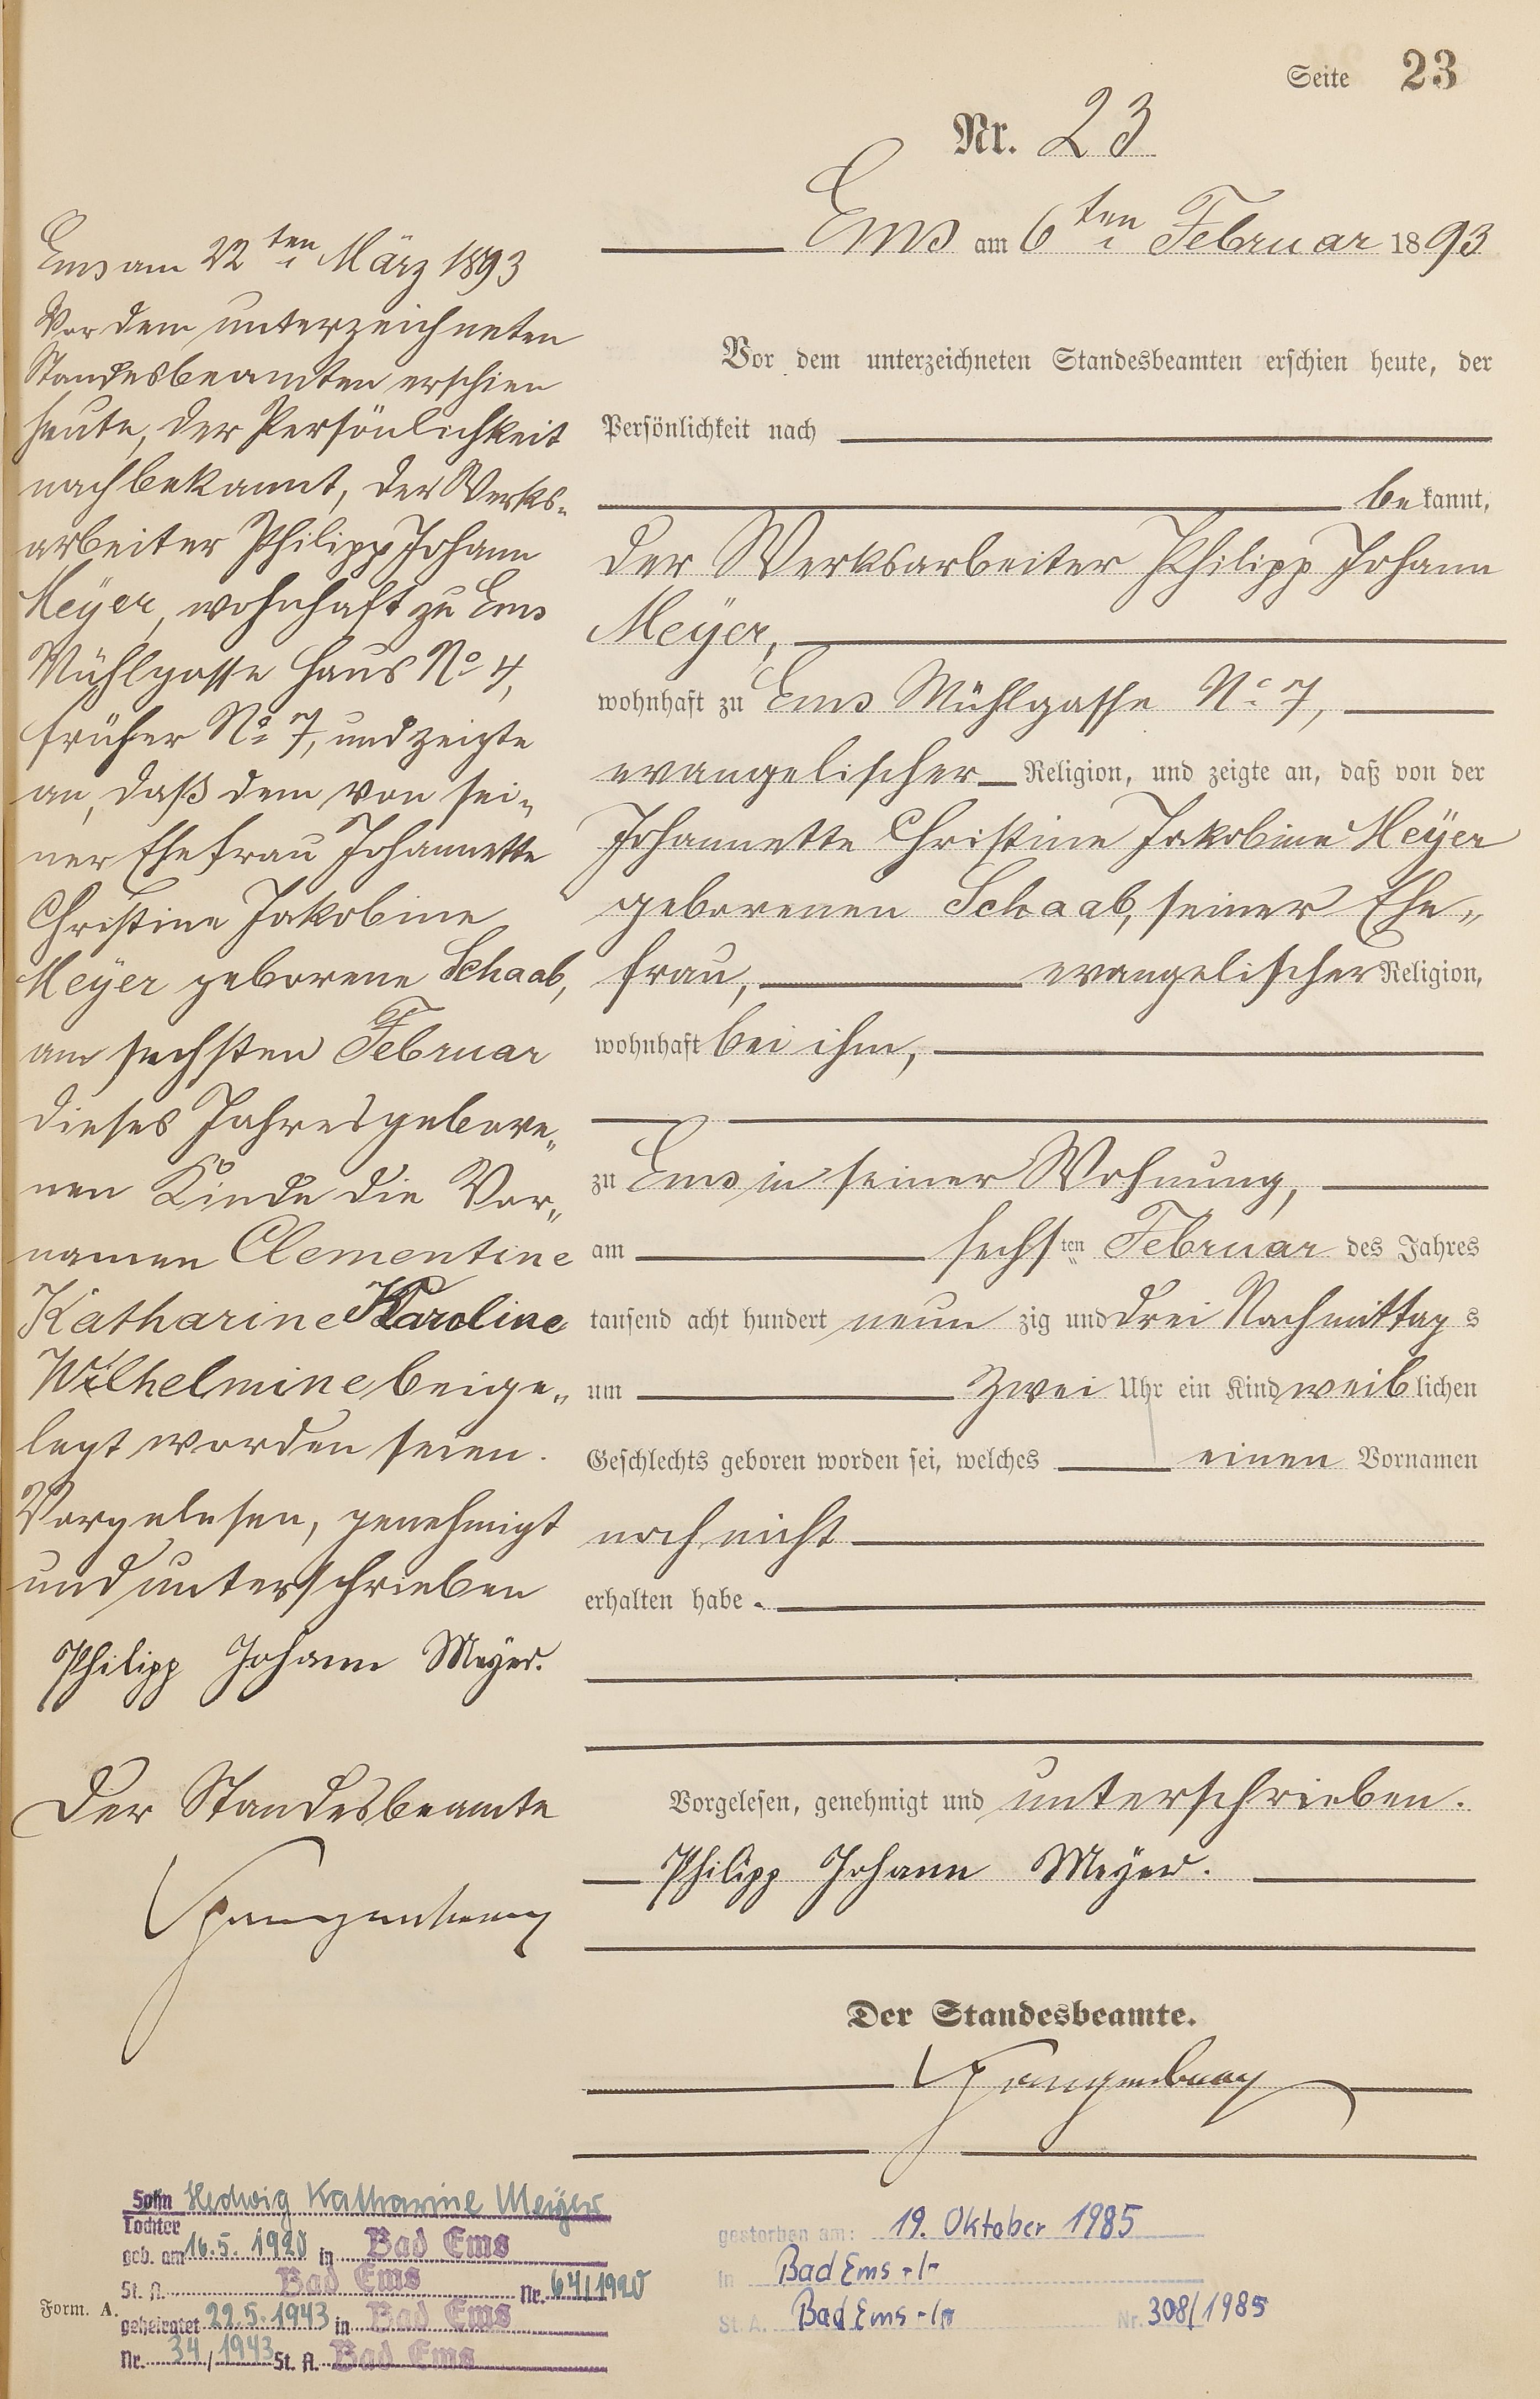 Seite 23
Nr. 23
Ems am 6ten Februar 1893
Vor dem unterzeichneten Standesbeamten erschien heute, der
Persönlichkeit nach
bekannt,
der Werksarbeiter Philipp Johann
Meÿer,
wohnhaft zu Ems Mühlgasse No 7,
evangelischer Religion, und zeigte an, daß von der
Johannette Christine Jakobine Meÿer
geborenen Schaab, seiner Ehe-
frau, evangelischer Religion,
wohnhaft bei ihm,
zu Ems in seiner Wohnung,
am sechsten Februar des Jahres
tausend acht hundert neunzig und drei Nachmittags
um zwei Uhr ein Kind weiblichen
Geschlechts geboren worden sei, welches einen Vornamen
noch nicht
erhalten habe.
Vorgelesen, genehmigt und unterschrieben.
Philipp Johann Meyer.
Der Standesbeamte.
Ems am 22ten März 1893
Vor dem unterzeichneten
Standesbeamten erschien
heute, der Persönlichkeit
nach bekannt, der Werks-
arbeiter Philipp Johann
Meÿer, wohnhaft zu Ems
Mühlgasse Haus No 4,
früher No 7, und zeigte
an, daß dem von sei-
ner Ehefrau Johannette
Christine Jakobine
Meÿer geborene Schaab,
am sechsten Februar
dieses Jahres gebore-
nen Kinde die Vor-
namen Clementine
Katharine Karoline
Wilhelmine beige-
legt worden seien.
Vorgelesen, genehmigt
und unterschrieben
Philipp Johann Meyer.
Der Standesbeamte
Sohn Hedwig Katharine Meyer
Tochter
geb. am 16.5.1920 in Bad Ems
St. A. Bad Ems Nr. 64/1920
Form. A.
geheiratet 22.5.1943 in Bad Ems
Nr. 34/1943 St. A. Bad Ems
gestorben am: 19. Oktober 1985
in Bad Ems -/-
St. A. Bad Ems -/- Nr. 308/1985